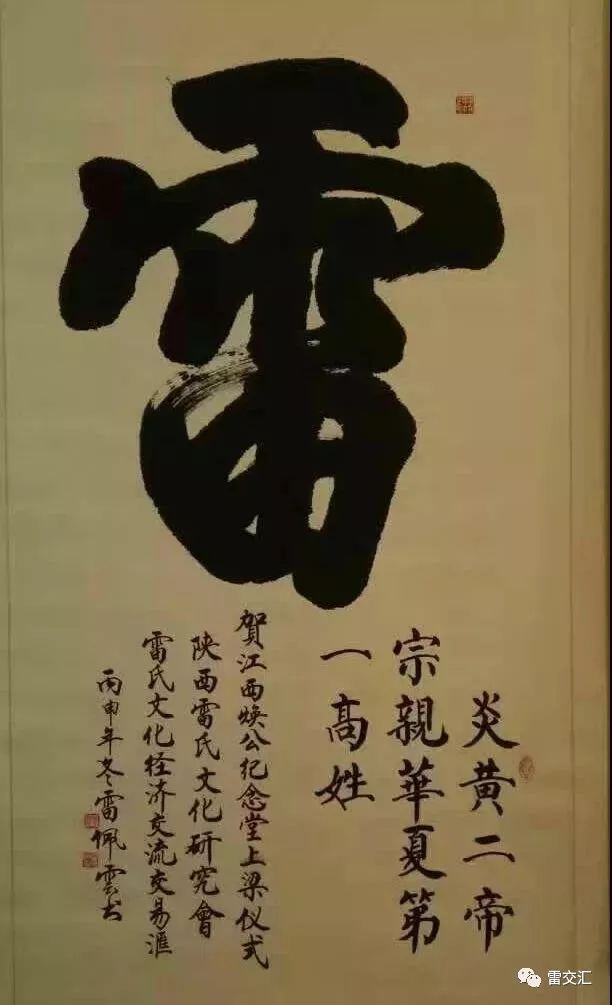 雷
炎黄二帝
宗親華夏第
一高姓
賀江西焕公纪念堂上梁仪式
陕西雷氏文化研究會
雷氏文化经济交流交易滙
丙申年冬雷佩雲书
雷交汇